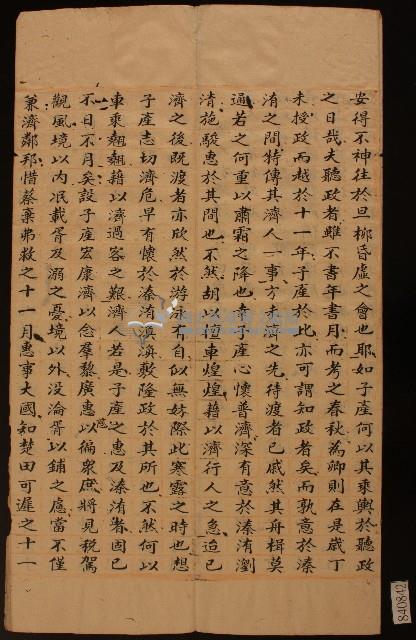 安得不神往於旦柳昏虛之會也耶如子產何以其乘輿於聽政
之日哉夫聽政者雖不書年書月而考之春秋為卿則在是歲丁
未授政而越於十一年子產於此亦可謂知政者矣而孰意於溱
洧之間特傳其濟人一事方未濟之先待渡者已戚然其舟楫莫
逼若之何重以肅霜之降也乘子產心懷普濟深有意於溱洧瀏
清施駿惠於其間也不然胡以檀車煌煌藉以濟行人之急迨已
濟之後既渡者亦欣然於游泳有自似無妨際此寒露之時也想
子產志切濟危早有懷於溱洧渙渙敷隆政於其所也不然何以
車乘翹翹藉以濟過客之艱濟人若是子產之惠及溱洧者固已
不日不月矣設子產宏康濟以念羣黎廣惠慈以徧眾庶將見稅駕
觀風境以內泯載胥及溺之憂境以外沒淪胥以鋪之慮當不僅
兼濟鄰邦惜蔡棄弗救之十一月惠事大國知楚田可遲之十一
840842